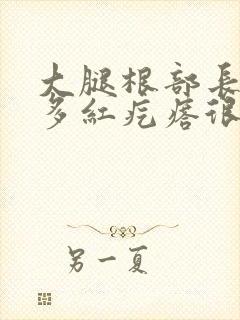 大腿根部長
多紅疙瘩很
另一夏